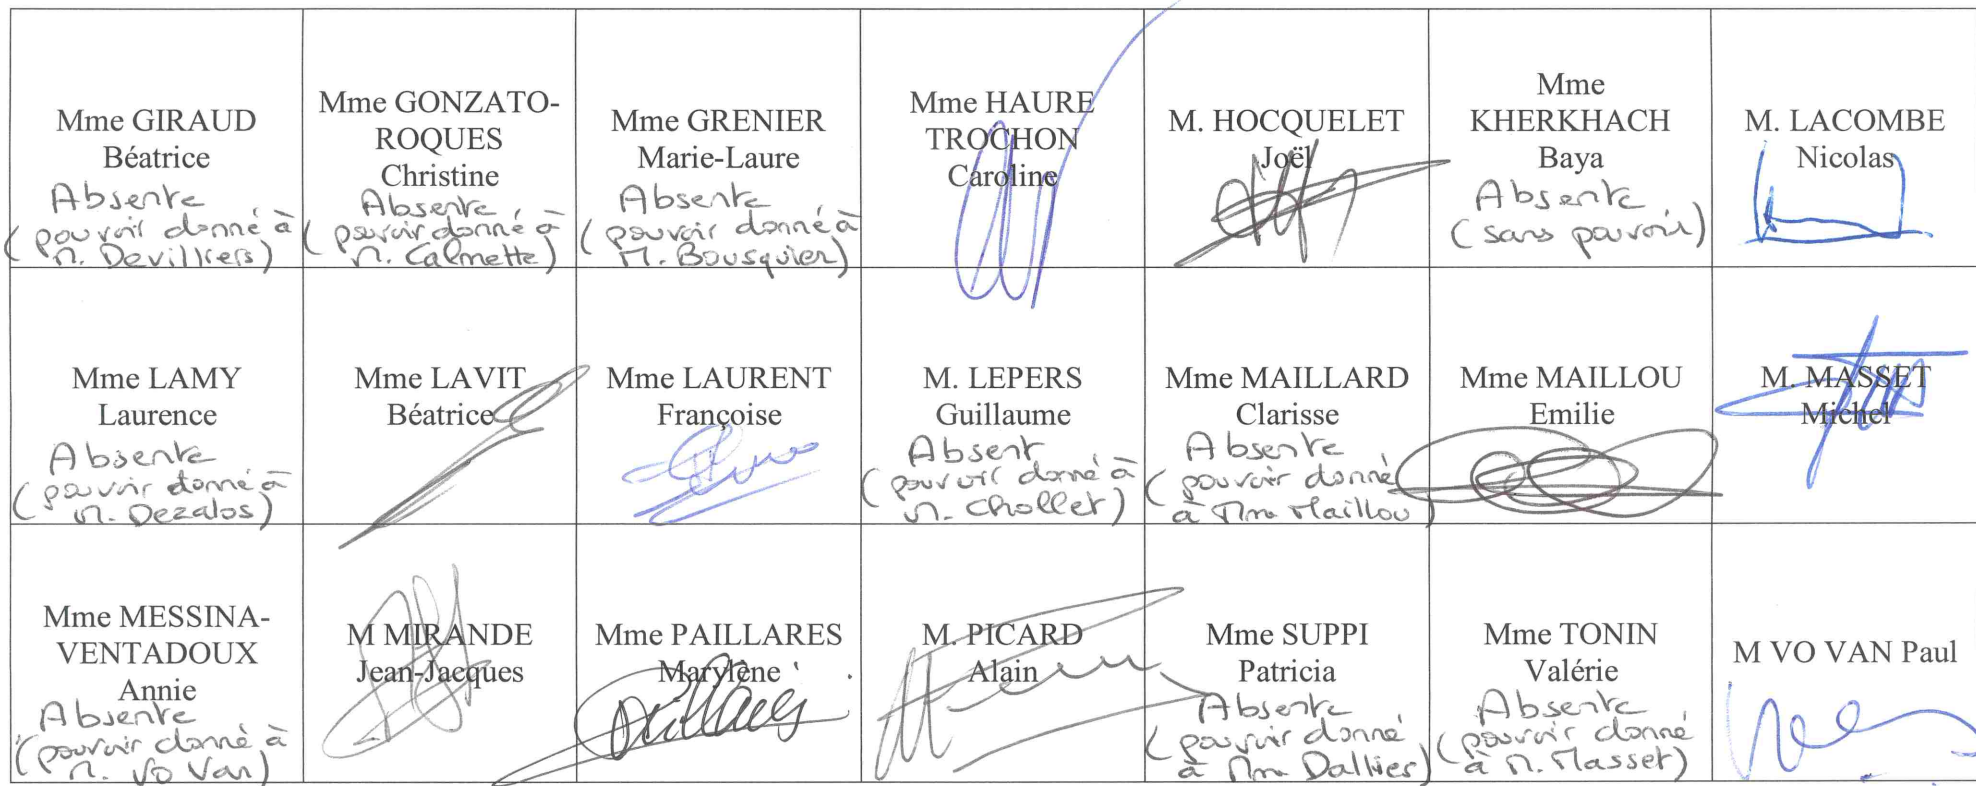 Mme GIRAUD
Béatrice
Absente
(pouvoir donné à
M. Devilliers)
Mme GONZATO-
ROQUES
Christine
Absente
(pouvoir donné à
M. Calmette)
Mme GRENIER
Marie-Laure
Absente
(pouvoir donné à
M. Bousquier)
Mme HAURE
TROCHON
Caroline
M. HOCQUELET
Joël
Mme
KHERKHACH
Baya
Absente
(sans pouvoir)
M. LACOMBE
Nicolas
Mme LAMY
Laurence
Absente
(pouvoir donné à
M. Dezalos)
Mme LAVIT
Béatrice
Mme LAURENT
Françoise
M. LEPERS
Guillaume
Absent
(pouvoir donné à
M. Chollet)
Mme MAILLARD
Clarisse
Absente
(pouvoir donné
à Mme Maillou)
Mme MAILLOU
Emilie
M. MASSET
Michel
Mme MESSINA-
VENTADOUX
Annie
Absente
(pouvoir donné à
M. Vo Van)
M MIRANDE
Jean-Jacques
Mme PAILLARES
Marylène
M. PICARD
Alain
Mme SUPPI
Patricia
Absente
(pouvoir donné
à Mme Dallies)
Mme TONIN
Valérie
Absente
(pouvoir donné
à M. Masset)
M VO VAN Paul